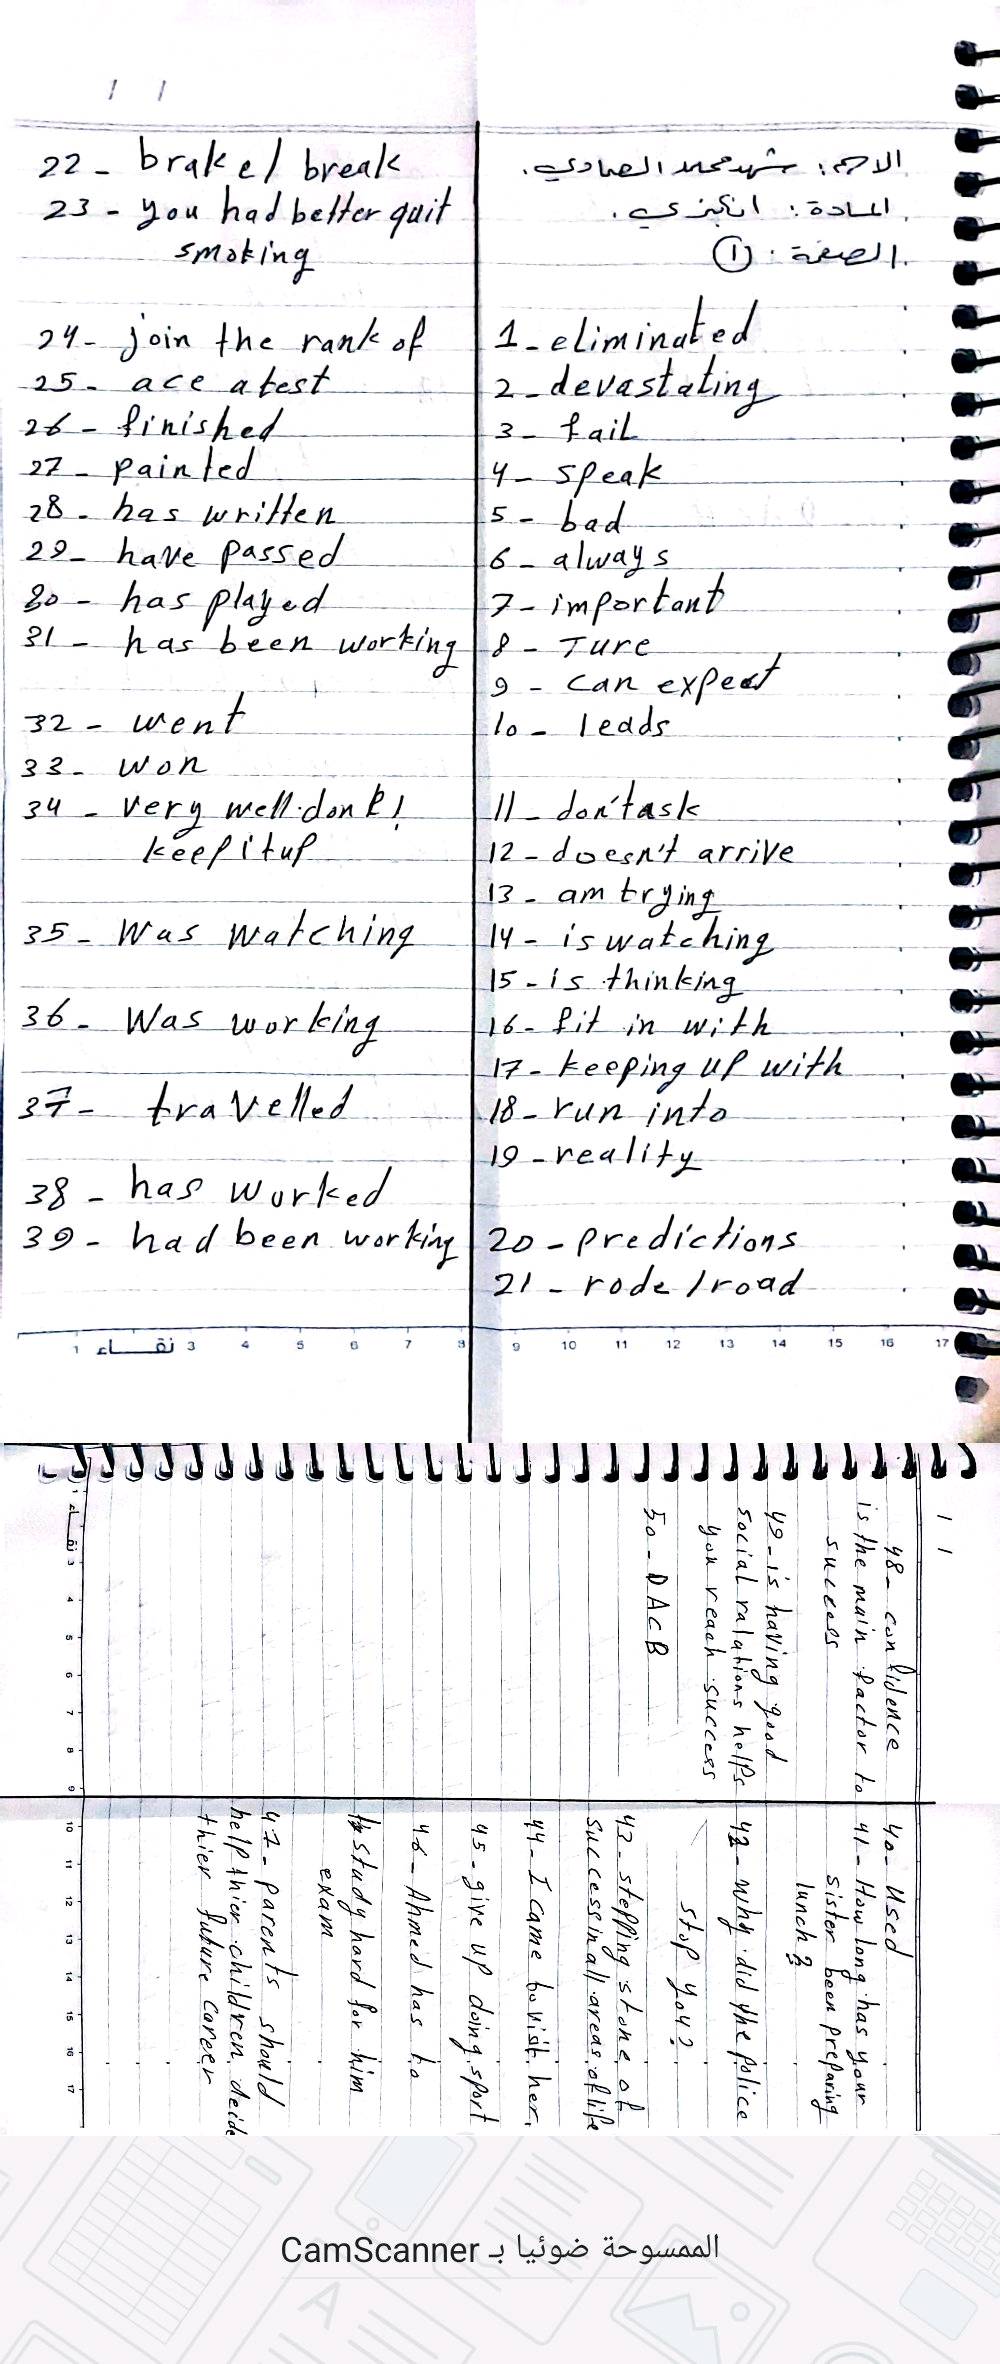 الاسم: شهد محمد الصماوي.
المادة: انكليزي.
الصفحة: ①
1_ eliminated
2_ devastating
3_ fail
4_ speak
5_ bad
6_ always
7_ important
8_ Ture
9_ can expect
10_ leads
11_ don't ask
12_ doesn't arrive
13_ am trying
14_ is watching
15_ is thinking
16_ fit in with
17_ keeping up with
18_ run into
19_ reality
20_ predictions
21_ rode / road
22_ brake / break
23_ you had better quit
smoking
24_ join the rank of
25_ ace a test
26_ finished
27_ painted
28_ has written
29_ have passed
30_ has played
31_ has been working
32_ went
33_ won
34_ very well done!
keep it up
35_ Was watching
36_ Was working
37_ travelled
38_ has worked
39_ had been working
نقـــاء
1 3 4 5 6 7 8 9 10 11 12 13 14 15 16 17
40_ Used
41_ How long has your
sister been preparing
lunch?
42_ why did the police
stop you?
43_ stepping stone of
success in all areas of life
44_ I came to visit her.
45_ give up doing sport
46_ Ahmed has to
study hard for him
exam
47_ parents should
help thier children deide
thier future career
48_ confidence
is the main factor to
success
49_ is having good
social ralations helps
you reach success
50_ DACB
نقـــاء
3 4 5 6 7 8 9 10 11 12 13 14 15 16 17
الممسوحة ضوئيا بـ CamScanner